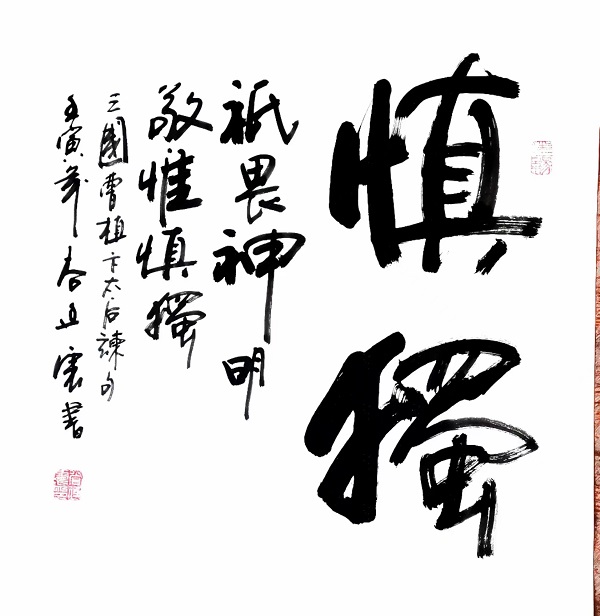 慎獨
祗畏神明
敬惟慎獨
三國曹植卞太后諫句
壬寅年 書